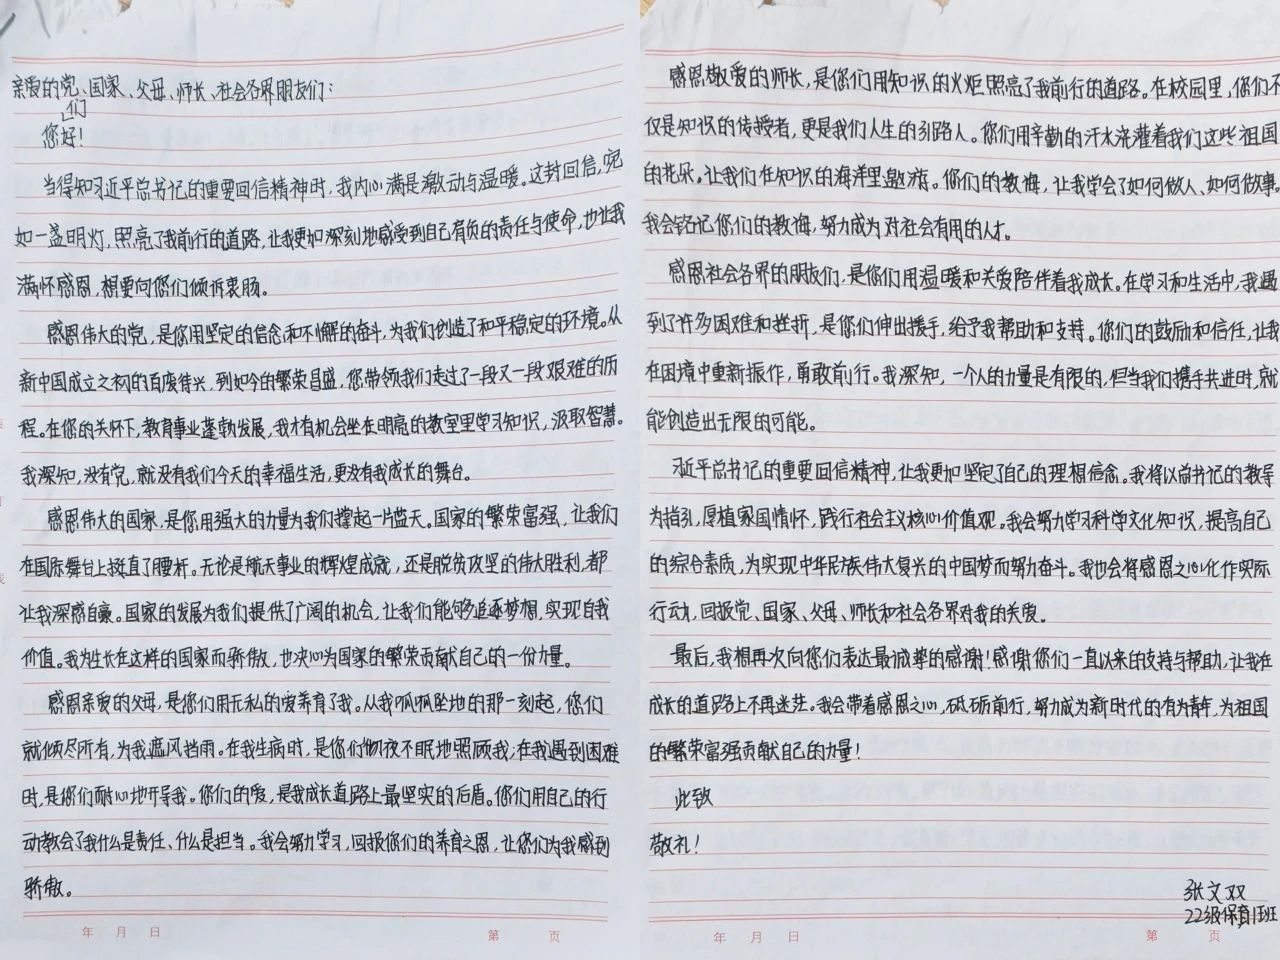 亲爱的党、国家、父母、师长、社会各界朋友们:
们
您好!
当得知习近平总书记的重要回信精神时,我内心满是激动与温暖。这封回信,宛
如一盏明灯,照亮了我前行的道路,让我更加深刻地感受到自己肩负的责任与使命,也让我
满怀感恩,想要向你们倾诉衷肠。
感恩伟大的党,是您用坚定的信念和不懈的奋斗,为我们创造了和平稳定的环境。从
新中国成立之初的百废待兴,到如今的繁荣昌盛,您带领我们走过了一段又一段艰难的历
程。在您的关怀下,教育事业蓬勃发展,我才有机会坐在明亮的教室里学习知识,汲取智慧。
我深知,没有党,就没有我们今天的幸福生活,更没有我成长的舞台。
感恩伟大的国家,是您用强大的力量为我们撑起一片蓝天。国家的繁荣富强,让我们
在国际舞台上挺直了腰杆。无论是航天事业的辉煌成就,还是脱贫攻坚的伟大胜利,都
让我深感自豪。国家的发展为我们提供了广阔的机会,让我们能够追逐梦想,实现自我
价值。我为生长在这样的国家而骄傲,也决心为国家的繁荣贡献自己的一份力量。
感恩亲爱的父母,是您们用无私的爱养育了我。从我呱呱坠地的那一刻起,您们
就倾尽所有,为我遮风挡雨。在我生病时,是您们彻夜不眠地照顾我;在我遇到困难
时,是你们耐心地开导我。您们的爱,是我成长道路上最坚实的后盾。你们用自己的行
动教会了我什么是责任、什么是担当。我会努力学习,回报您们的养育之恩,让您们为我感到
骄傲。
年 月 日
第 页
感恩敬爱的师长,是您们用知识的火炬照亮了我前行的道路。在校园里,你们不
仅是知识的传授者,更是我们人生的引路人。您们用辛勤的汗水浇灌着我们这些祖国
的花朵,让我们在知识的海洋里遨游。您们的教诲,让我学会了如何做人、如何做事。
我会铭记您们的教诲,努力成为对社会有用的人才。
感恩社会各界的朋友们,是你们用温暖和关爱陪伴着我成长。在学习和生活中,我遇
到了许多困难和挫折,是您们伸出援手,给予我帮助和支持。你们的鼓励和信任,让我
在困境中重新振作,勇敢前行。我深知,一个人的力量是有限的,但当我们携手共进时,就
能创造出无限的可能。
习近平总书记的重要回信精神,让我更加坚定了自己的理想信念。我将以总书记的教导
为指引,厚植家国情怀,践行社会主义核心价值观。我会努力学习科学文化知识,提高自己
的综合素质,为实现中华民族伟大复兴的中国梦而努力奋斗。我也会将感恩之心化作实际
行动,回报党、国家、父母、师长和社会各界对我的关爱。
最后,我想再次向您们表达最诚挚的感谢!感谢您们一直以来的支持与帮助,让我在
成长的道路上不再迷茫。我会带着感恩之心,砥砺前行,努力成为新时代的有为青年,为祖国
的繁荣富强贡献自己的力量!
此致
敬礼!
张文双
22级保育1班
年 月 日
第 页